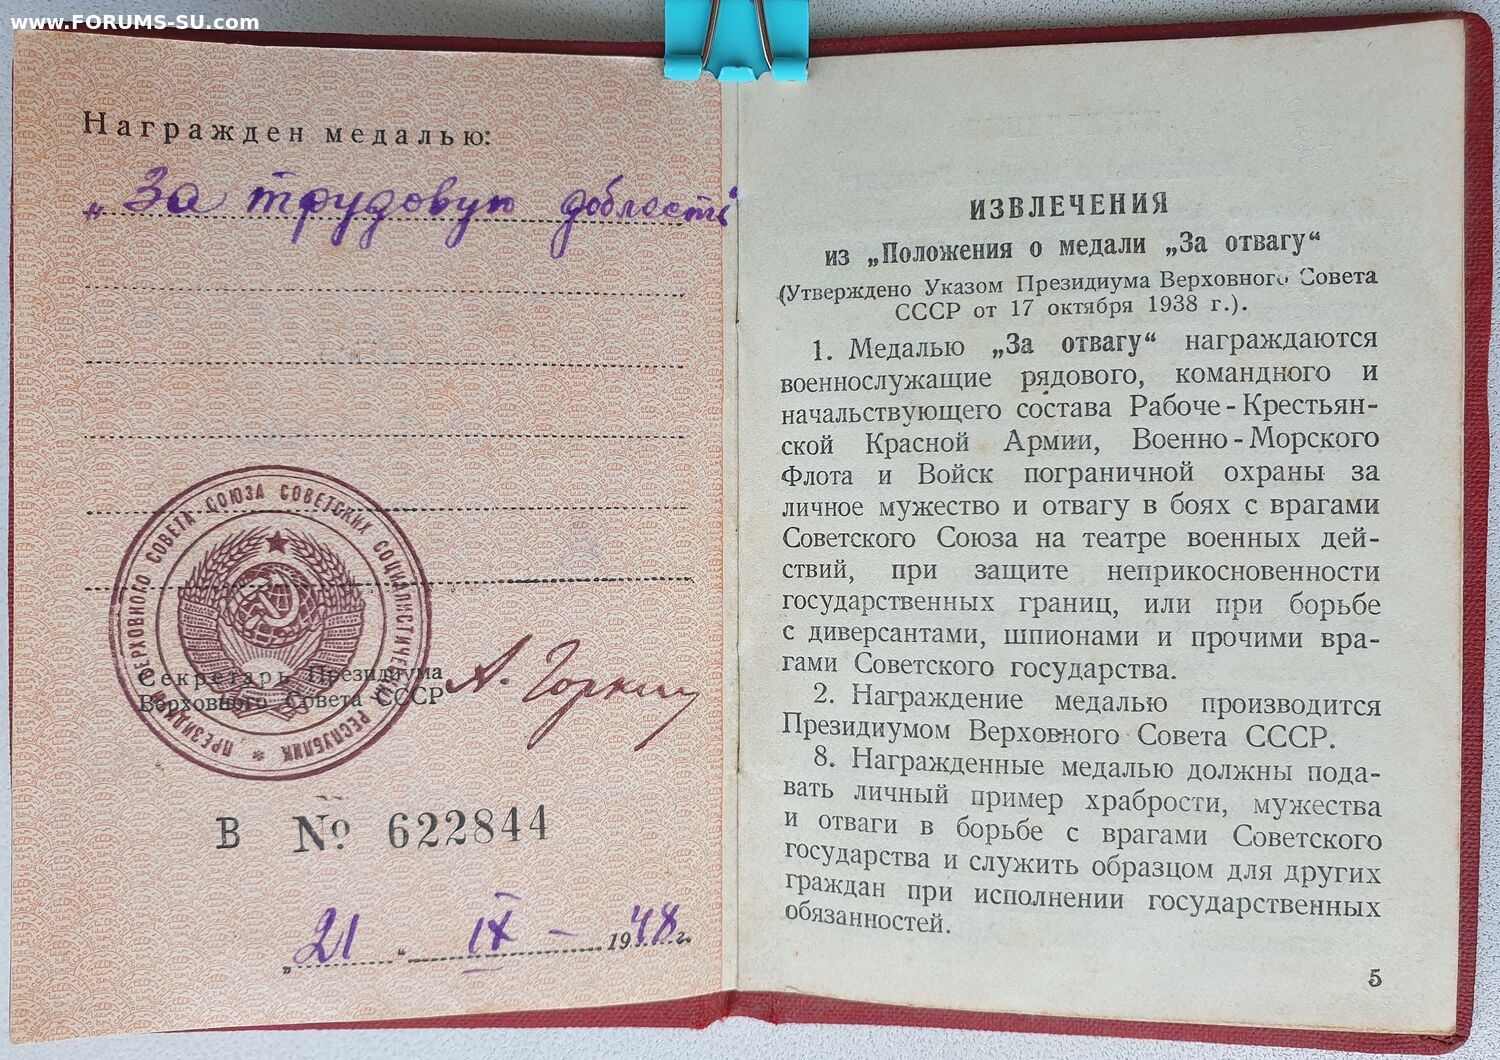 www.FORUMS-SU.com
Награжден медалью:
„За трудовую доблесть"
ПРЕЗИДИУМ ВЕРХОВНОГО СОВЕТА СОЮЗА СОВЕТСКИХ СОЦИАЛИСТИЧЕСКИХ РЕСПУБЛИК *
Секретарь Президиума
Верховного Совета СССР А. Горкин
В № 622844
„21" IX - 1948 г.
ИЗВЛЕЧЕНИЯ
из „Положения о медали „За отвагу“
(Утверждено Указом Президиума Верховного Совета
СССР от 17 октября 1938 г.).
1. Медалью „За отвагу“ награждаются
военнослужащие рядового, командного и
начальствующего состава Рабоче-Крестьян-
ской Красной Армии, Военно-Морского
Флота и Войск пограничной охраны за
личное мужество и отвагу в боях с врагами
Советского Союза на театре военных дей-
ствий, при защите неприкосновенности
государственных границ, или при борьбе
с диверсантами, шпионами и прочими вра-
гами Советского государства.
2. Награждение медалью производится
Президиумом Верховного Совета СССР.
8. Награжденные медалью должны пода-
вать личный пример храбрости, мужества
и отваги в борьбе с врагами Советского
государства и служить образцом для других
граждан при исполнении государственных
обязанностей.
5